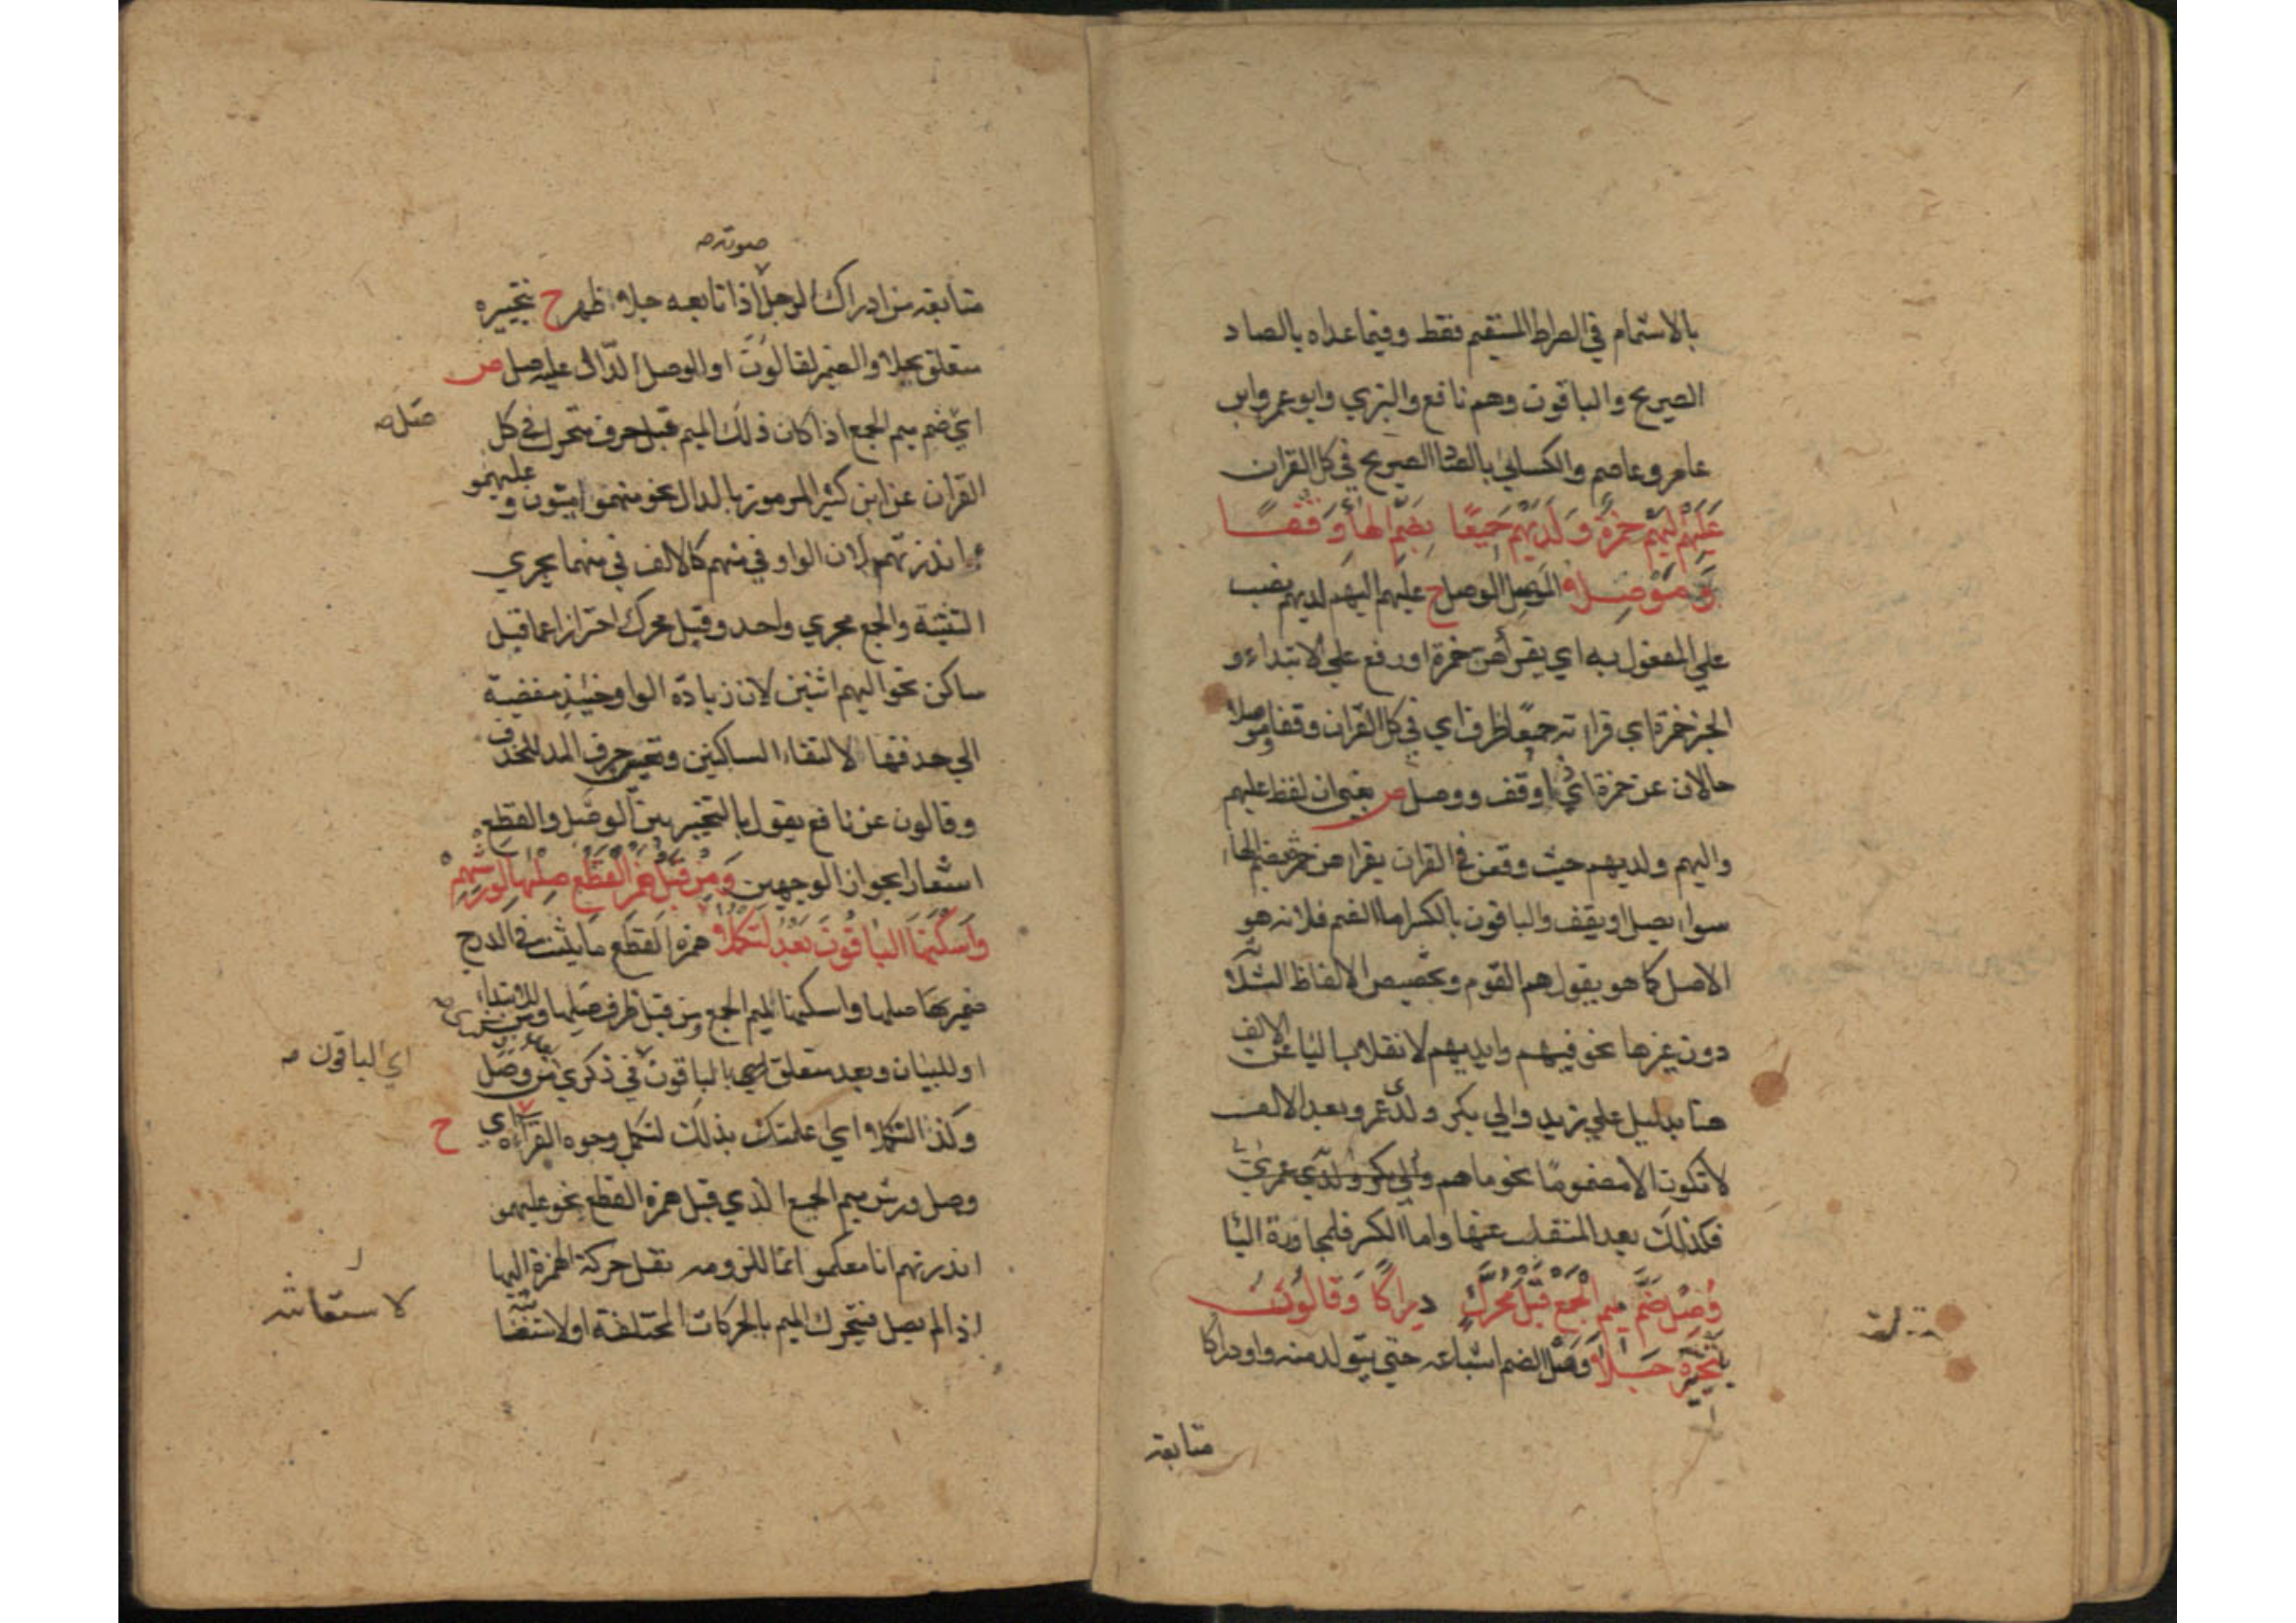 بالاشمام في الصراط المستقيم فقط وفيما عداه بالصاد
الصريح والباقون وهم نافع والبزي وابو عمرو وابن
عامر وعاصم والكسائي بالصاد الصريح في كل القران
عَلَيْهِمْ اِلَيْهِمْ حَمْزَةٌ وَلَدَيْهِمْ جَمِيعًا بِضَمِّ الْهَاءِ وَقْفًا
وَمَوْصِلَا الموصل الوصل ح عليهم اليهم لديهم نصب
علي المفعول به اي يقرأهن حمزة او رفع علي الابتداء و
الخبر حمزة اي قراءته جميعا ظرف اي في كل القران وقفا وموصلا
حالان عن حمزة اي وقف ووصل ص يعني ان لفظ عليهم
واليهم ولديهم حيث وقعن في القران يقراهن حمزة بضم الهاء
سواء يصل او يقف والباقون بالكسر اما الضم فلانه هو
الاصل كما هو يقول هم القوم وتخصيص الالفاظ الثلاثة
دون غيرها نحو فيهم وايديهم لانقلاب الياء عن الالف
هنا بدليل علي زيد والي بكر ولدي عمرو وبعد الالف
لا تكون الا مضموما نحو ما هم والي بكر ولدي عمرو
فكذلك بعد المنقلب عنها واما الكسر فلمجاورة الياء
وَصِلْ ضَمَّ مِيمِ الْجَمْعِ قَبْلَ مُحَرَّكٍ دِرَاكًا وَقَالُونٌ
بِتَخْيِيرِهِ جَلَا وصل الضم اشباعه حتي يتولد منه واو دراكا
متابعة
صوته صه
متابعة من ادراك الرجل اذا تابعه جلا اظهر ح بتخييره
متعلق بجلا والضمير لقالون او للوصل الدال عليه صل ص
اي ضم ميم الجمع اذا كان ذلك الميم قبل حرف متحرك في كل
القران عن ابن كثير المرموز بالدال نحو منهمو اميون وعليهمو
ءانذرتهم لان الواو في منهم كالالف في منهما يجري
التثنية والجمع مجري واحد وقبل محرك احترازا عما قبل
ساكن نحو اليهم اثنين لان زيادة الواو حينئذ مفضية
الي حذفها لالتقاء الساكنين وتعين حرف المد للحذف
وقالون عن نافع يقول بالتخيير بين الوصل والقطع
اشعارا بجواز الوجهين وَمِنْ قَبْلِ هَمْزِ الْقَطْعِ صِلْهَا لِوَرْشِهِمْ
وَاَسْكَنَهَا الْبَاقُونَ بَعْدُ لِتَكْمُلَا همزة القطع ما يثبت في الدرج
ضمير بها صلها واسكنها لميم الجمع ومن قبل ظرف صلها ومن للابتداء
او للبيان وبعد متعلق بالباقون في ذكري من وصل
اي الباقون صه
وكذا لتكملا اي اعلمتك بذلك لتكمل وجوه القراءة اي ح
وصل ورش ميم الجمع الذي قبل همزة القطع نحو عليهمو
انذرتهم انا معكمو انما للزومه نقل حركة الهمزة اليها
اذا لم يصل فيتحرك الميم بالحركات المختلفة او